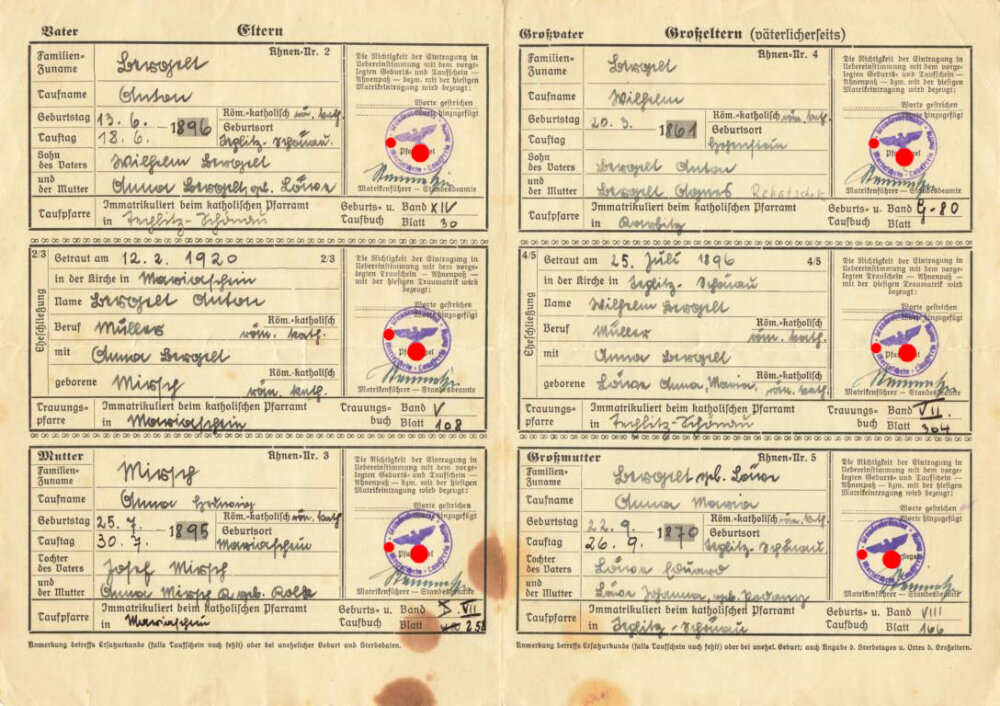 Vater
Eltern
Ahnen-Nr. 2
Familien-Zuname
Bergelt
Taufname
Anton
Geburtstag 13. 6. 1896
Röm.-katholisch röm. kath.
Tauftag 18. 6.
Geburtsort
Teplitz-Schönau.
Sohn des Vaters
Wilhelm Bergelt
und der Mutter
Anna Bergelt, geb. Löwe
Taufpfarre
Immatrikuliert beim katholischen Pfarramt
in Teplitz-Schönau
Geburts- u. Taufbuch
Band XIV
Blatt 30
Die Richtigkeit der Eintragung in
Uebereinstimmung mit dem vorge-
legten Geburts- und Taufschein —
Ahnenpaß — bezw. mit der hiesigen
Matrikeneintragung wird bezeugt:
Worte gestrichen
Worte hinzugefügt
Matrikenführer — Standesbeamte
2/3
Eheschließung
Getraut am 12. 2. 1920
2/3
in der Kirche in Mariaschein
Name Bergelt Anton
Beruf Müller
Röm.-katholisch
röm. kath.
mit Anna Bergelt
geborene Mirsch
Röm.-katholisch
röm. kath.
Trauungs-pfarre
Immatrikuliert beim katholischen Pfarramt
in Mariaschein
Trauungs-buch
Band V
Blatt 108
Die Richtigkeit der Eintragung in
Uebereinstimmung mit dem vorge-
legten Trauschein — Ahnenpaß —
mit der hiesigen Traumatrik wird
bezeugt:
Worte gestrichen
Worte hinzugefügt
Matrikenführer — Standesbeamte
Mutter
Ahnen-Nr. 3
Familien-Zuname
Mirsch
Taufname
Anna Hedwig
Geburtstag 25. 7. 1895
Röm.-katholisch röm. kath.
Tauftag 30. 7.
Geburtsort
Mariaschein
Tochter des Vaters
Josef Mirsch
und der Mutter
Anna Mirsch geb.
Taufpfarre
Immatrikuliert beim katholischen Pfarramt
in Mariaschein
Geburts- u. Taufbuch
Band VII
Blatt 258
Die Richtigkeit der Eintragung in
Uebereinstimmung mit dem vorge-
legten Geburts- und Taufschein —
Ahnenpaß — bzw. mit der hiesigen
Matrikeneintragung wird bezeugt:
Worte gestrichen
Worte hinzugefügt
Matrikenführer — Standesbeamte
Anmerkung betreffs Ersatzurkunde (falls Taufschein noch fehlt) oder bei unehelicher Geburt und Sterbedaten.
Großvater
Großeltern (väterlicherseits)
Ahnen-Nr. 4
Familien-Zuname
Bergelt
Taufname
Wilhelm
Geburtstag 20. 3. 1861
Röm.-katholisch röm. kath.
Tauftag
Geburtsort
Sohn des Vaters
Bergelt Anton
und der Mutter
Bergelt Agnes
Taufpfarre
Immatrikuliert beim katholischen Pfarramt
in Karbitz
Geburts- u. Taufbuch
Band G-80
Blatt
Die Richtigkeit der Eintragung in
Uebereinstimmung mit dem vorge-
legten Geburts- und Taufschein —
Ahnenpaß — bezw. mit der hiesigen
Matrikeneintragung wird bezeugt:
Worte gestrichen
Worte hinzugefügt
Matrikenführer — Standesbeamte
4/5
Eheschließung
Getraut am 25. Juli 1896
4/5
in der Kirche in Teplitz-Schönau
Name Wilhelm Bergelt
Beruf Müller
Röm.-katholisch
röm. kath.
mit Anna Bergelt
geborene Löwe Anna, Maria,
Röm.-katholisch
röm. kath.
Trauungs-pfarre
Immatrikuliert beim katholischen Pfarramt
in Teplitz-Schönau
Trauungs-buch
Band VII.
Blatt 364
Die Richtigkeit der Eintragung in
Uebereinstimmung mit dem vorge-
legten Trauschein — Ahnenpaß —
mit der hiesigen Traumatrik wird
bezeugt:
Worte gestrichen
Worte hinzugefügt
Matrikenführer — Standesbeamte
Großmutter
Ahnen-Nr. 5
Familien-Zuname
Bergelt geb. Löwe
Taufname
Anna Maria
Geburtstag 22. 9. 1870
Röm.-katholisch röm. kath.
Tauftag 26. 9.
Geburtsort
Teplitz-Schönau
Tochter des Vaters
Löwe Eduard
und der Mutter
Löwe Johanna, geb.
Taufpfarre
Immatrikuliert beim katholischen Pfarramt
in Teplitz-Schönau
Geburts- u. Taufbuch
Band VIII
Blatt 166
Die Richtigkeit der Eintragung in
Uebereinstimmung mit dem vorge-
legten Geburts- und Taufschein —
Ahnenpaß — bzw. mit der hiesigen
Matrikeneintragung wird bezeugt:
Worte gestrichen
Worte hinzugefügt
Matrikenführer — Standesbeamte
Anmerkung betreffs Ersatzurkunde (falls Taufschein noch fehlt) oder bei unehel. Geburt; auch Angabe d. Sterbetages u. Ortes d. Großeltern.